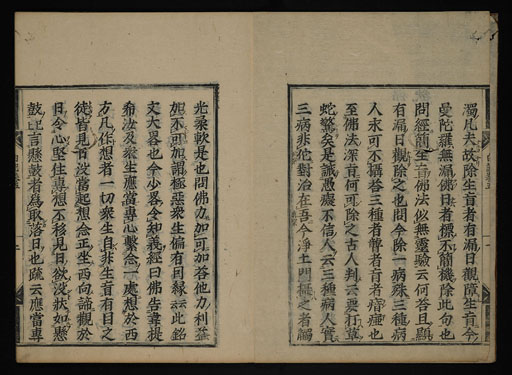 濁凡夫故除生盲者有漏日觀障生盲今
曼陀羅無漏佛日者標不簡機除此句也
問經簡生盲佛法似無靈驗云何答且顯
有漏日觀除之也問今除一病殊三種病
人永可不攝答三種者聾者盲者瘖瘂也
至佛法深旨何可除之古人判云要打草
蛇驚矣是誡愚癡不信人云三種病人實
三病非他對治在吾今淨土門攝之者觸
光柔軟是也問佛力如何加答他力利益
加不可加謂極惡衆生偏有因緣云此銘
文大畧也今少畧令知義經曰佛告韋提
希汝及衆生應當專心繫念一處想於西
方凡作想者一切衆生自非生盲有目之
徒皆見日沒當起想念正坐西向諦觀於
日令心堅住專想不移見日欲沒狀如懸
鼓言懸鼓者爲取落日也疏云應當專